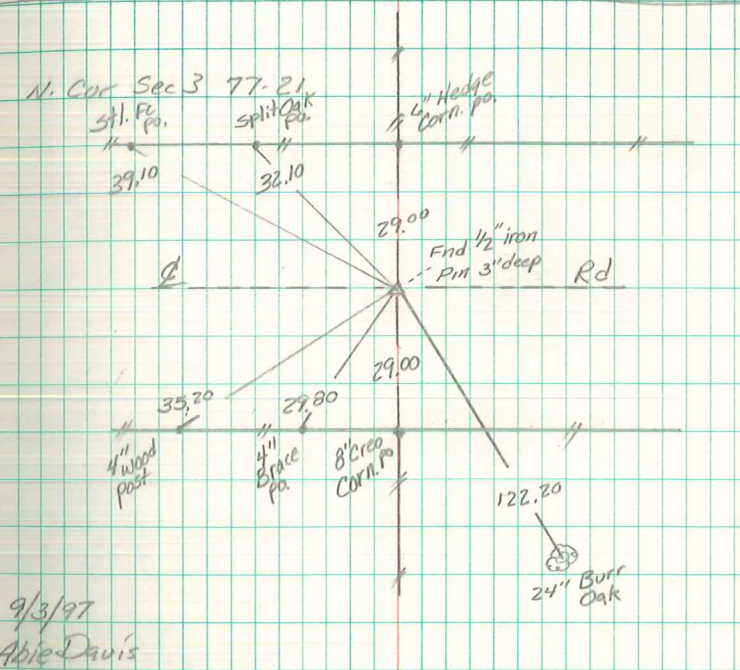 N. Cor Sec 3 77-21
Stl. Fc
po.
split Oak
po.
6" Hedge
Corn. po.
39.10
32.10
29.00
Fnd 1/2" iron
Pin 3" deep
℄
Rd
29.00
35.20
29.80
4" Wood
post
4"
Brace
po.
8" Creo
Corn. po
122.20
24" Burr
Oak
9/3/97
Abie Davis